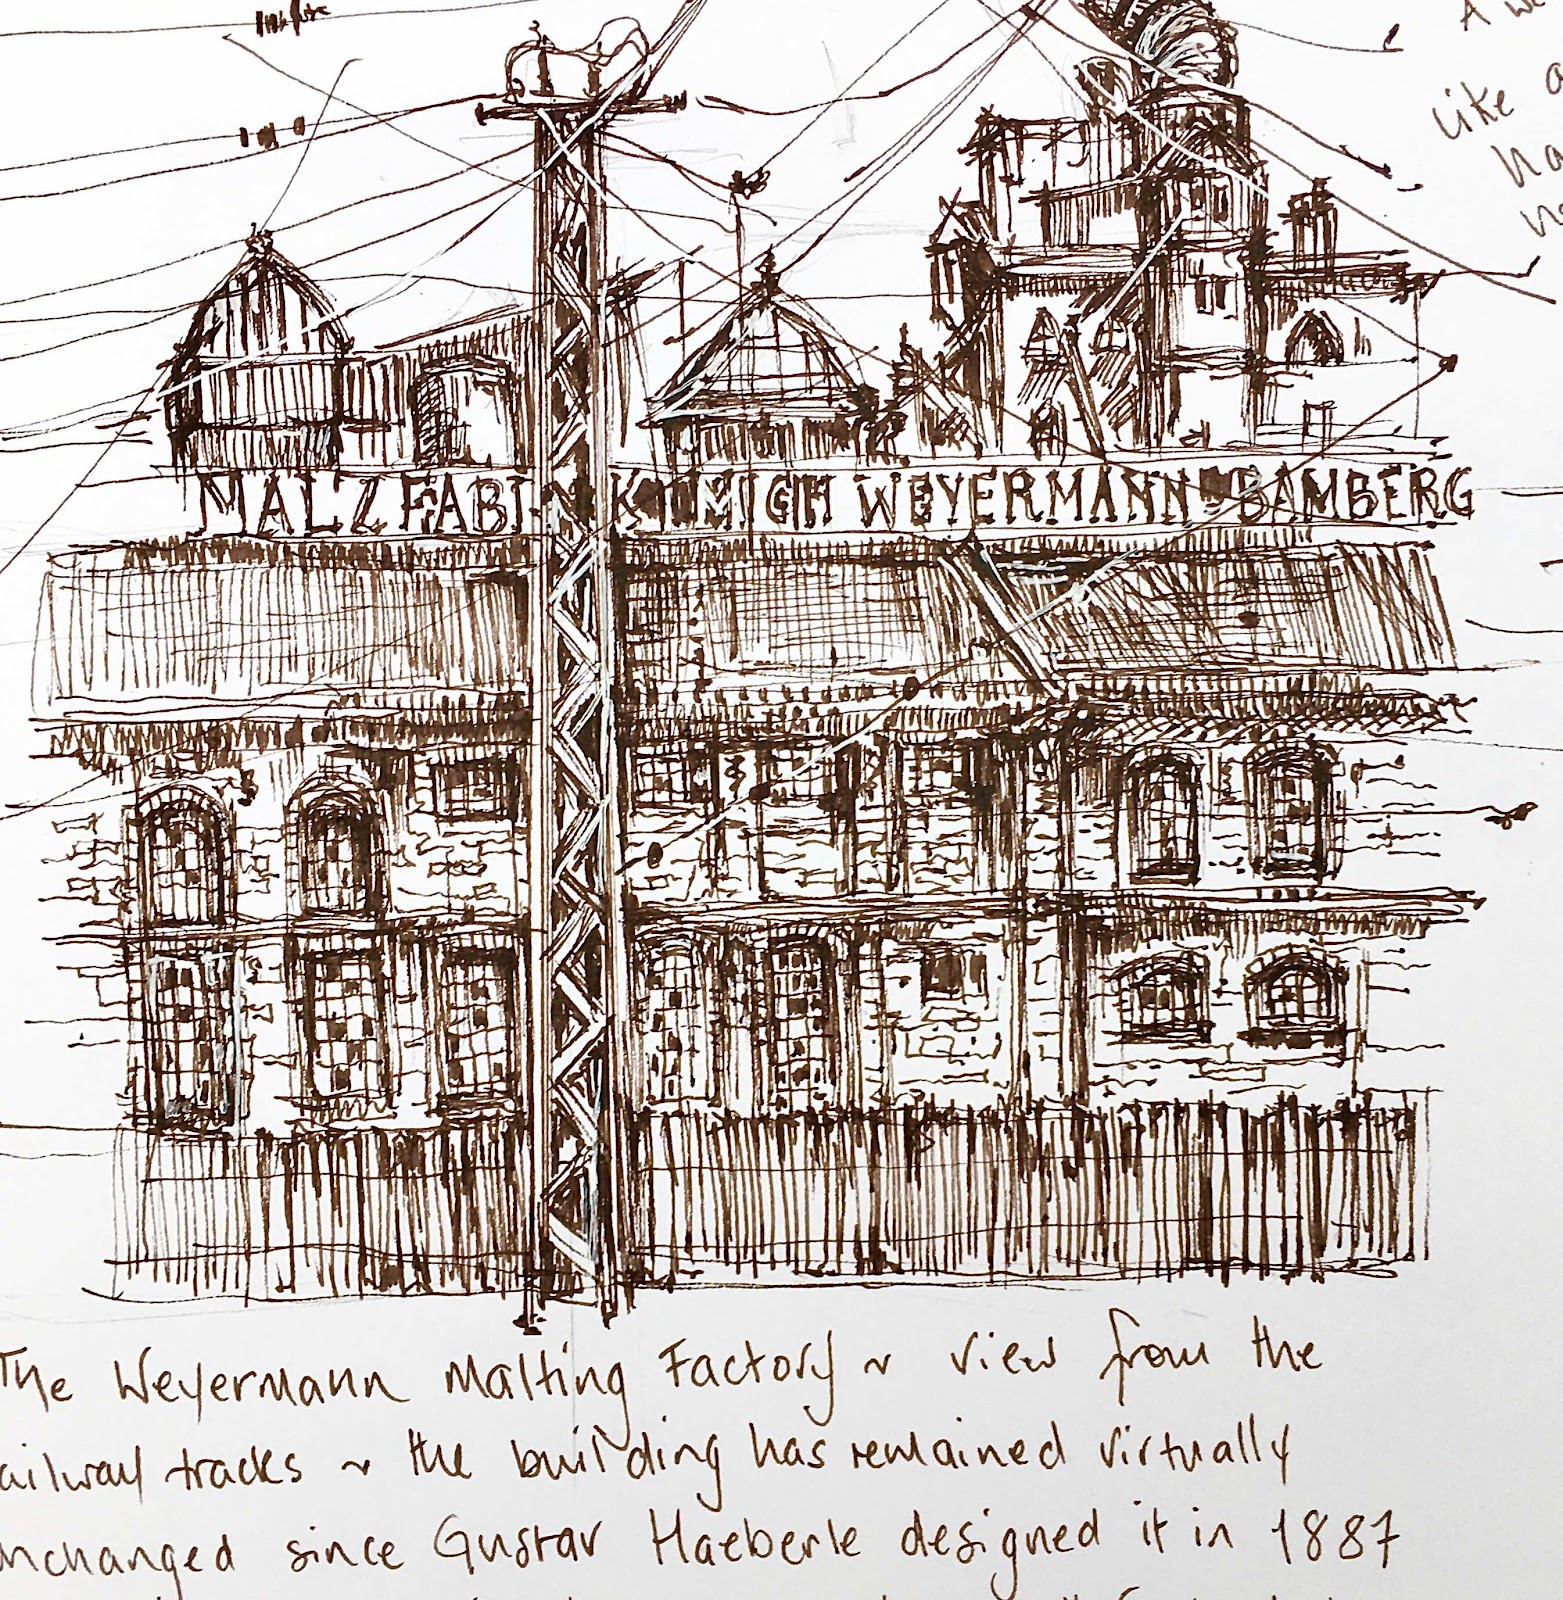 A
like
MALZFABRIK MICH WEYERMANN BAMBERG
The Weyermann Malting Factory ~ view from the
railway tracks ~ the building has remained virtually
unchanged since Gustav Haeberle designed it in 1887